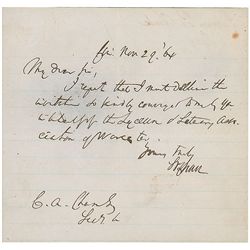 Nov 29. '64
My dear Sir,
I regret that I must decline the
invitation so kindly conveyed to me by you
in behalf of the Lyceum & Library Asso-
ciation of Worcester.
Yours truly
C. A. Chase Esq